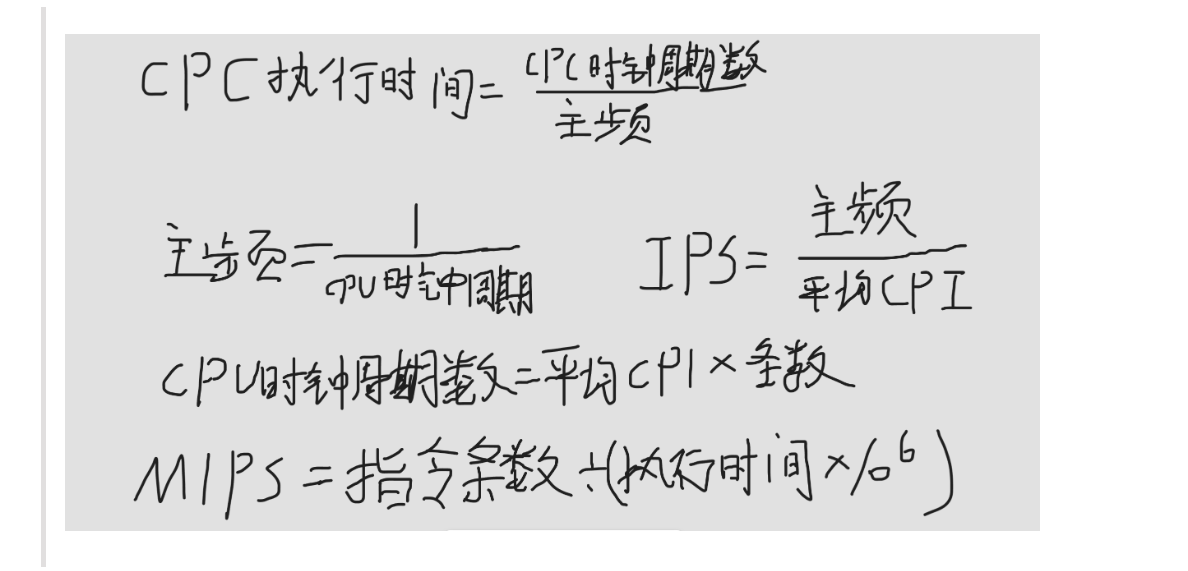 CPC执行时间=CPC时钟周期数/主频
主频=1/CPU时钟周期 IPS=主频/平均CPI
CPU时钟周期数=平均CPI×条数
MIPS=指令条数÷(执行时间×10^6)